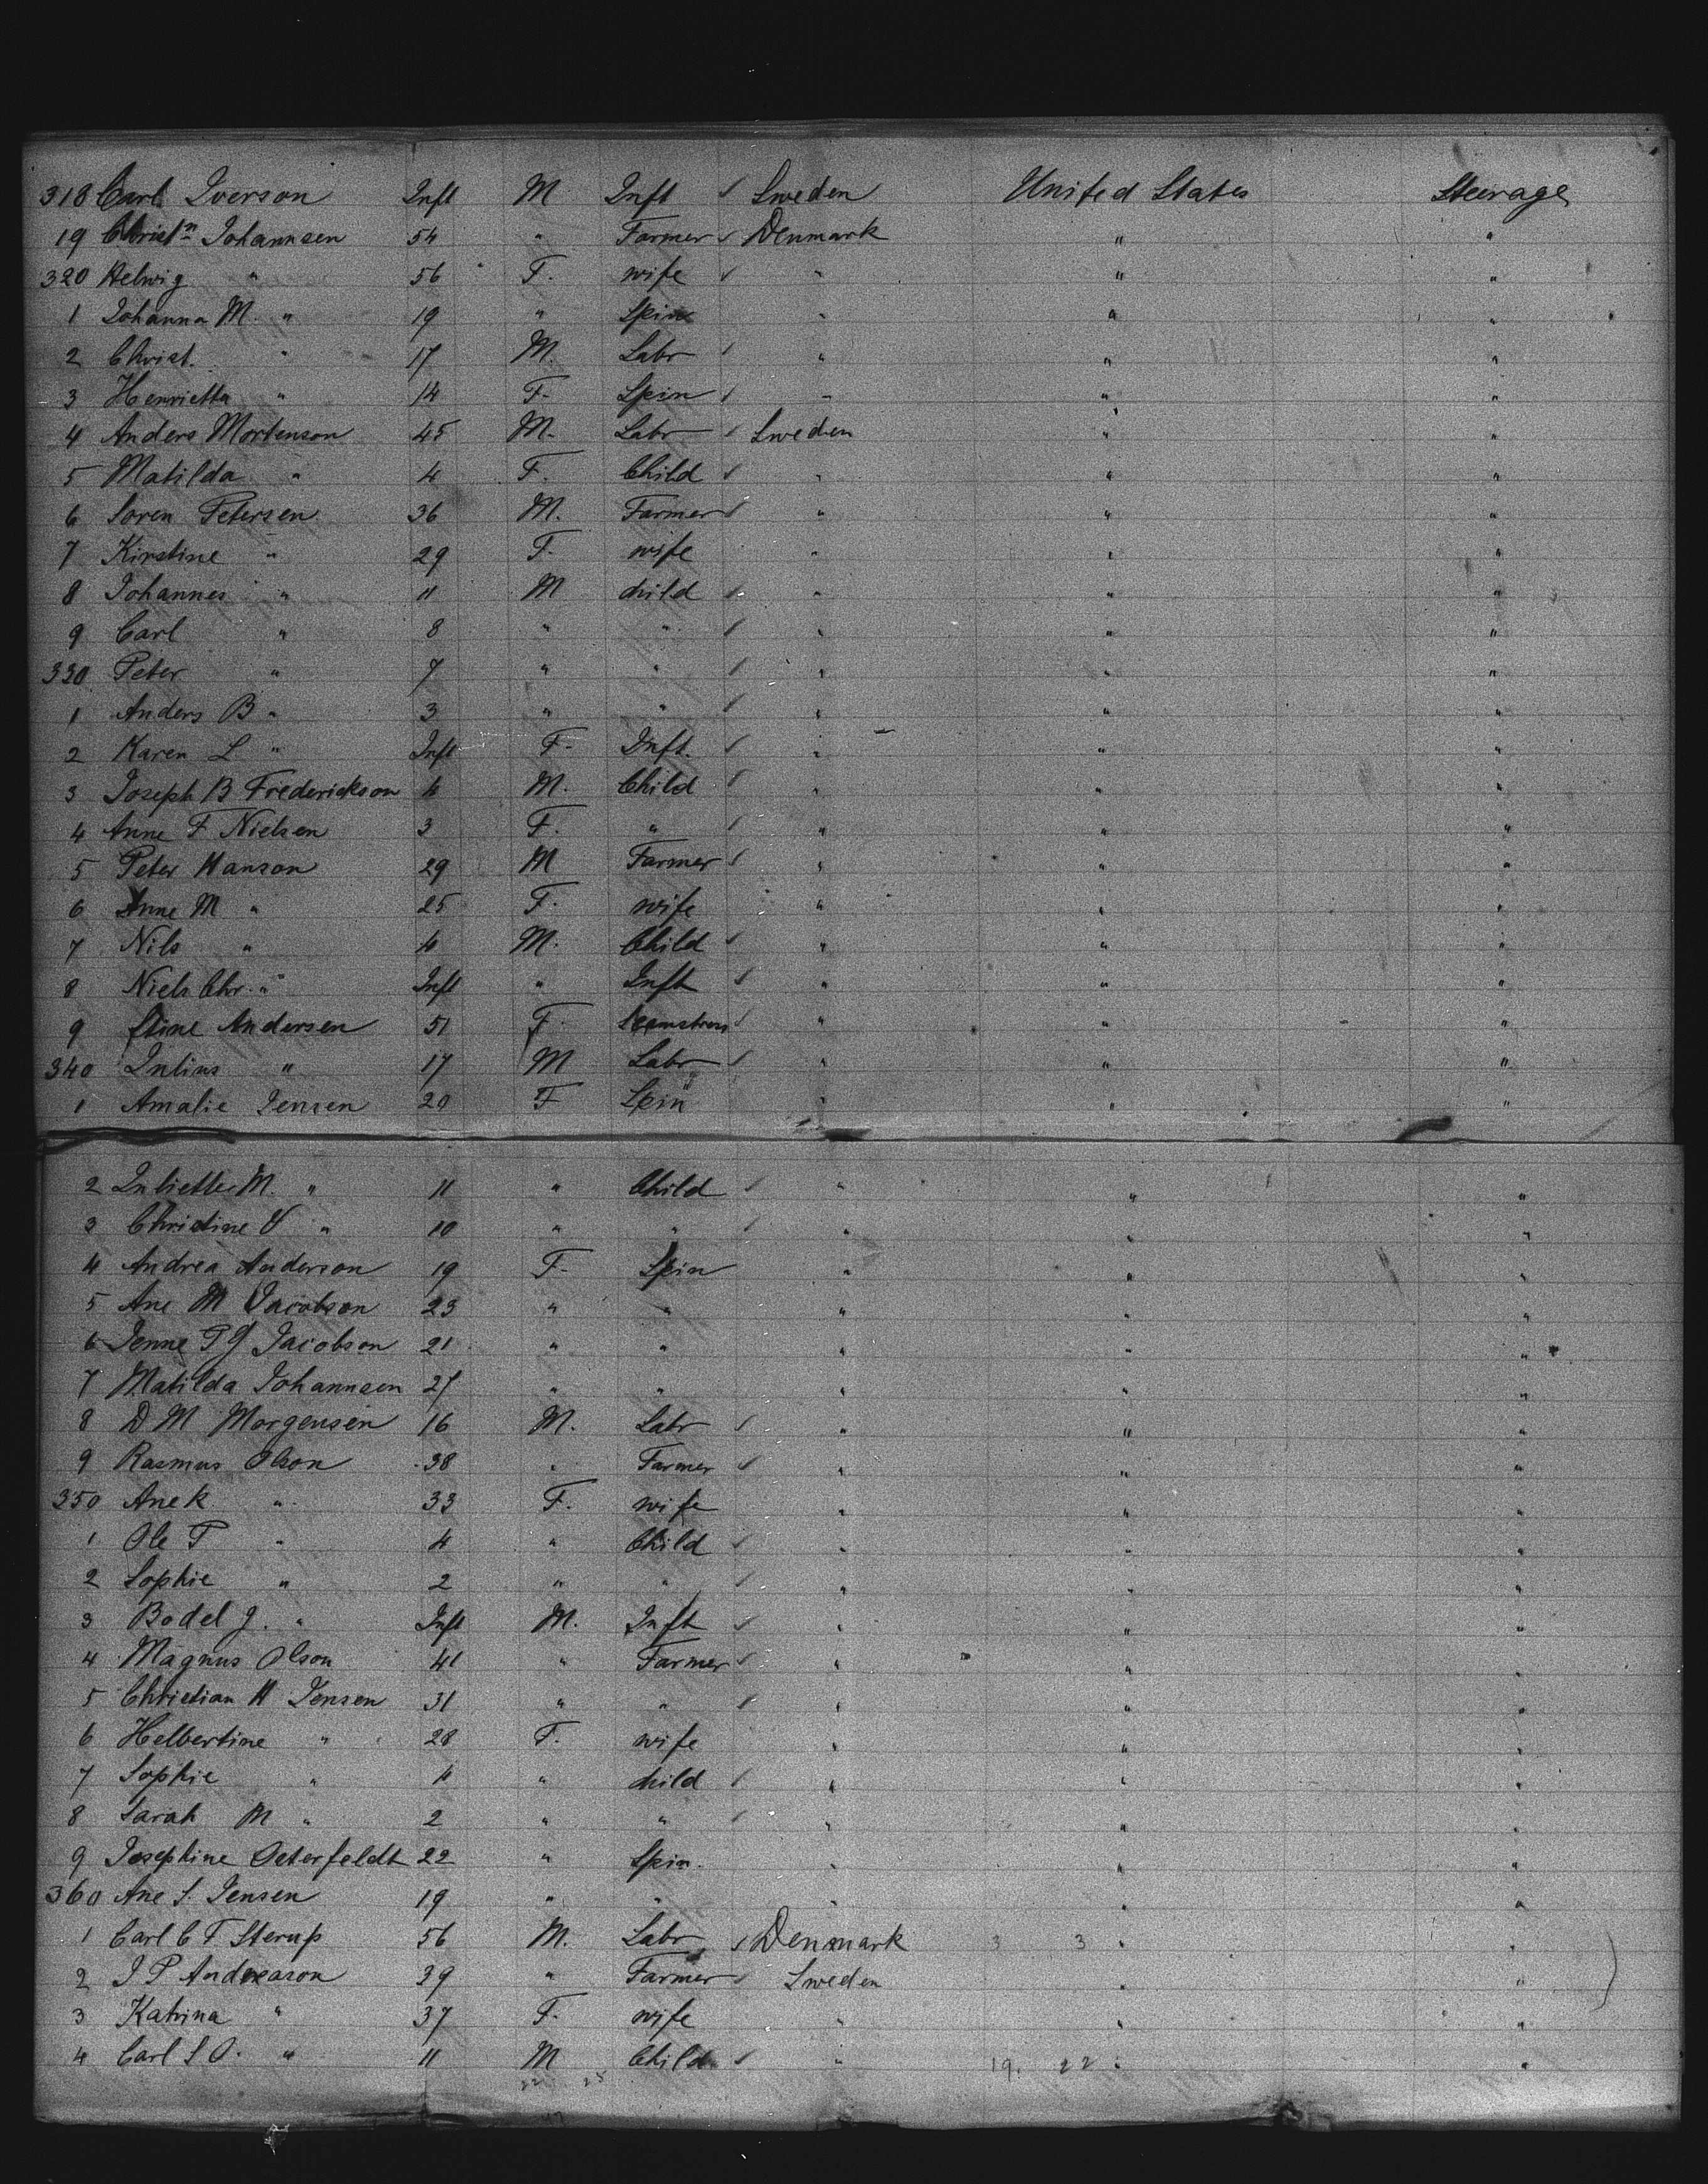 318 Carl Iverson Inft M Inft ✓ Sweden United States Steerage
19 Christn Johannsen 54 " Farmer ✓ Denmark " "
320 Helwig " 56 F. wife ✓ " " "
1 Johanna M. " 19 " Spin " " "
2 Christ. " 17 M. Labr ✓ " " "
3 Henrietta " 14 F. Spin ✓ " " "
4 Anders Mortenson 45 M. Labr ✓ Sweden " "
5 Matilda " 4 F. Child ✓ " " "
6 Soren Petersen 36 M. Farmer ✓ " " "
7 Kirstine " 29 F. wife " " "
8 Johannes " 11 M child ✓ " " "
9 Carl " 8 " " ✓ " " "
330 Peter " 7 " " ✓ " " "
1 Anders B " 3 " " ✓ " " "
2 Karen L " Inft F. Inft. ✓ " " "
3 Joseph B Frederickson 6 M. Child ✓ " " "
4 Anne F Nielsen 3 F. " ✓ " " "
5 Peter Hanson 29 M Farmer ✓ " " "
6 Anne M " 25 F. wife " " "
7 Nils " 4 M. Child ✓ " " "
8 Niels Chr. " Inft " Inft ✓ " " "
9 Stine Andersen 51 F. Seamstress ✓ " " "
340 Julius " 17 M Labr ✓ " " "
1 Amalie Jensen 20 F Spin " " "
2 Juliette M. " 11 " Child ✓ " " "
3 Christine V " 10 " " ✓ " " "
4 Andrea Anderson 19 F. Spin " " "
5 Ane M Jacobson 23 " " " " "
6 Jenne P J Jacobson 21 " " " " "
7 Matilda Johannsen 27 " " " " "
8 D M Morgensen 16 M. Labr ✓ " " "
9 Rasmus Olson 38 " Farmer ✓ " " "
350 Ane K " 33 F. wife " " "
1 Ole P " 4 " Child ✓ " " "
2 Sophie " 2 " " ✓ " " "
3 Bodel J. " Inft M. Inft ✓ " " "
4 Magnus Olson 41 " Farmer ✓ " " "
5 Christian H Jensen 31 " " ✓ " " "
6 Helbertine " 28 F. wife " " "
7 Sophie " 4 " child ✓ " " "
8 Sarah M " 2 " " ✓ " " "
9 Josephine Osterfeldt 22 " Spin. " " "
360 Ane S. Jensen 19 " " " " "
1 Carl C F Sterup 56 M. Labr ✓ Denmark 3 3 " "
2 J P Andreason 39 " Farmer ✓ Sweden " "
3 Katrina " 37 F. wife " " "
4 Carl S O. " 11 M Child ✓ " 19. 22 " "
22 25